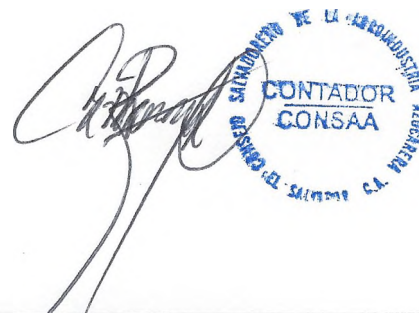 CONSEJO SALVADOREÑO DE LA AGROINDUSTRIA AZUCARERA
CONTADOR
CONSAA
EL SALVADOR C.A.